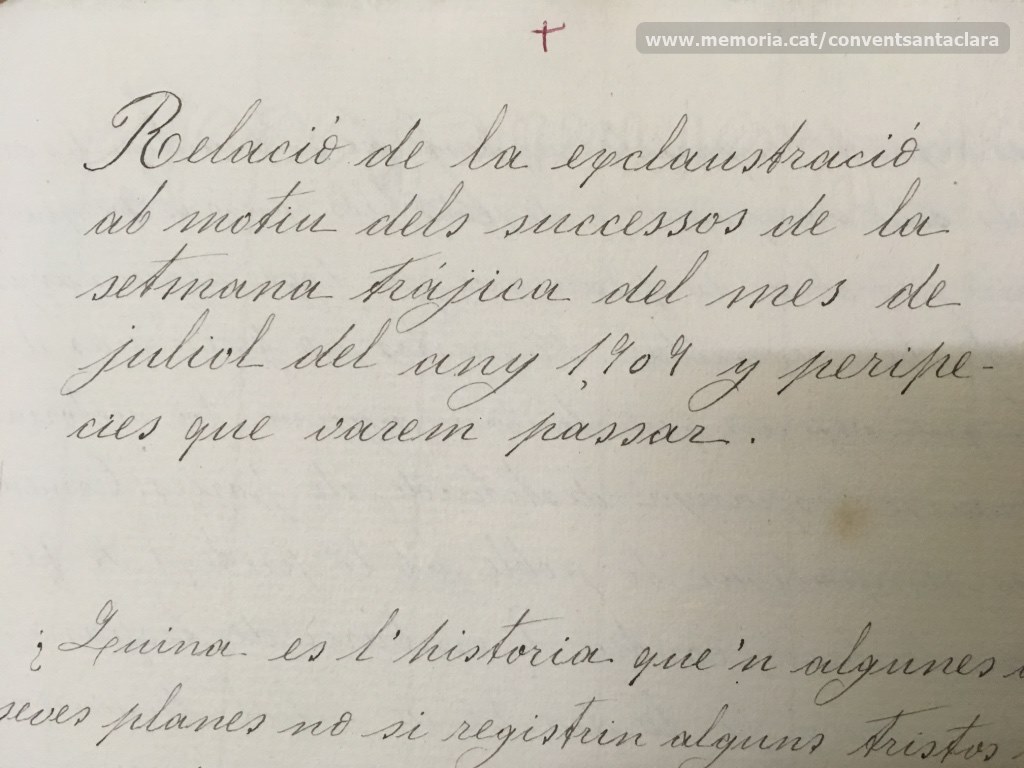 www.memoria.cat/conventsantaclara
Relació de la exclaustració
ab motiu dels successos de la
setmana trájica del mes de
juliol del any 1909 y peripe-
cies que varem passar.
¿Quina es l'historia que'n algunes
seves planes no si registrin alguns tristos